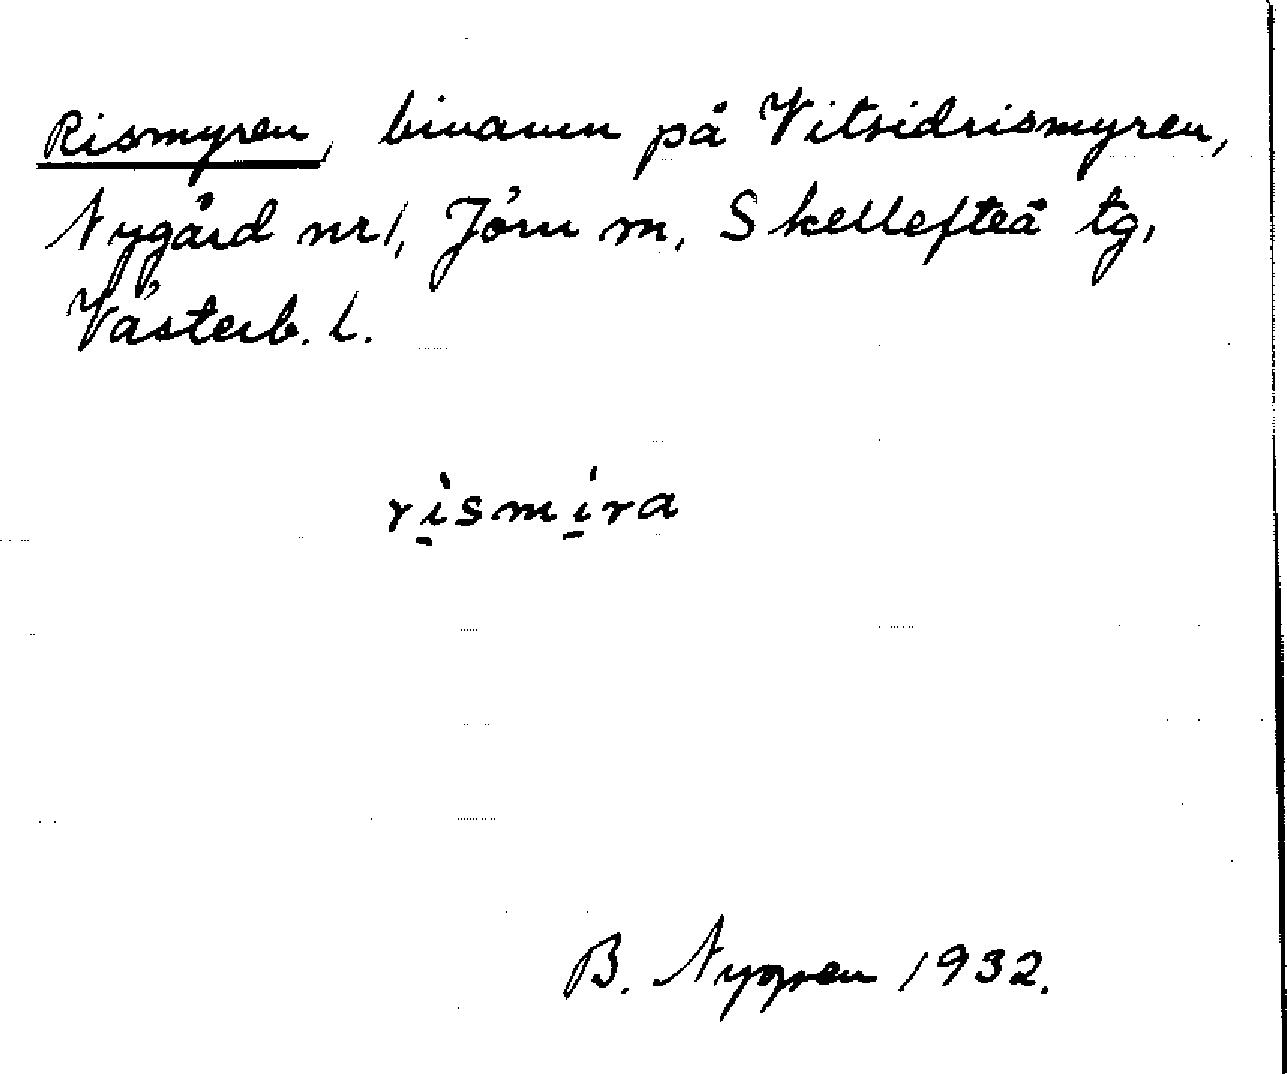 Rismyren, binamn på Vitsidrismyren,
Nygård nr 1, Jörn sn, Skellefteå tg,
Västerb. l.
ri̱smi̱ra
B. Nygren 1932.